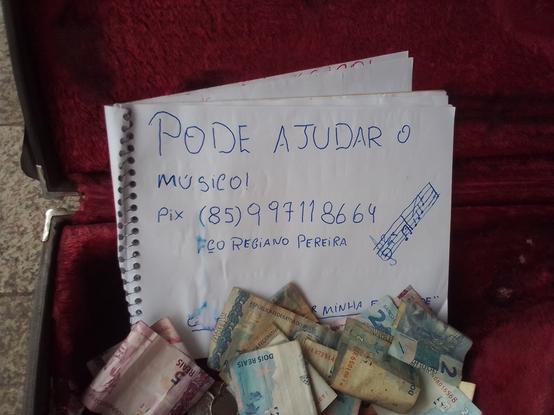 PODE AJUDAR O
MÚSICO!
PIX (85)997118664
FÇO REGIANO PEREIRA
MINHA
DOIS REAIS
2
2
5